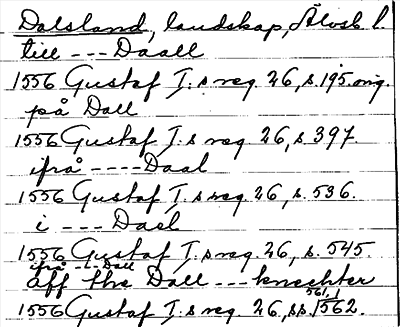 Dalsland, landskap, Älvsb. l.
till --- Daall
1556 Gustaf I:s reg. 26, s. 195. orig.
på Dall
1556 Gustaf I:s reg. 26, s. 397.
ifrå ---- Daal
1556 Gustaf I:s reg. 26, s. 536.
i --- Dael
1556 Gustaf I:s reg. 26, s. 545.
ifrå --- Dall
aff the Dall --- knechter
561,1
1556 Gustaf I:s reg. 26, ss. 562.